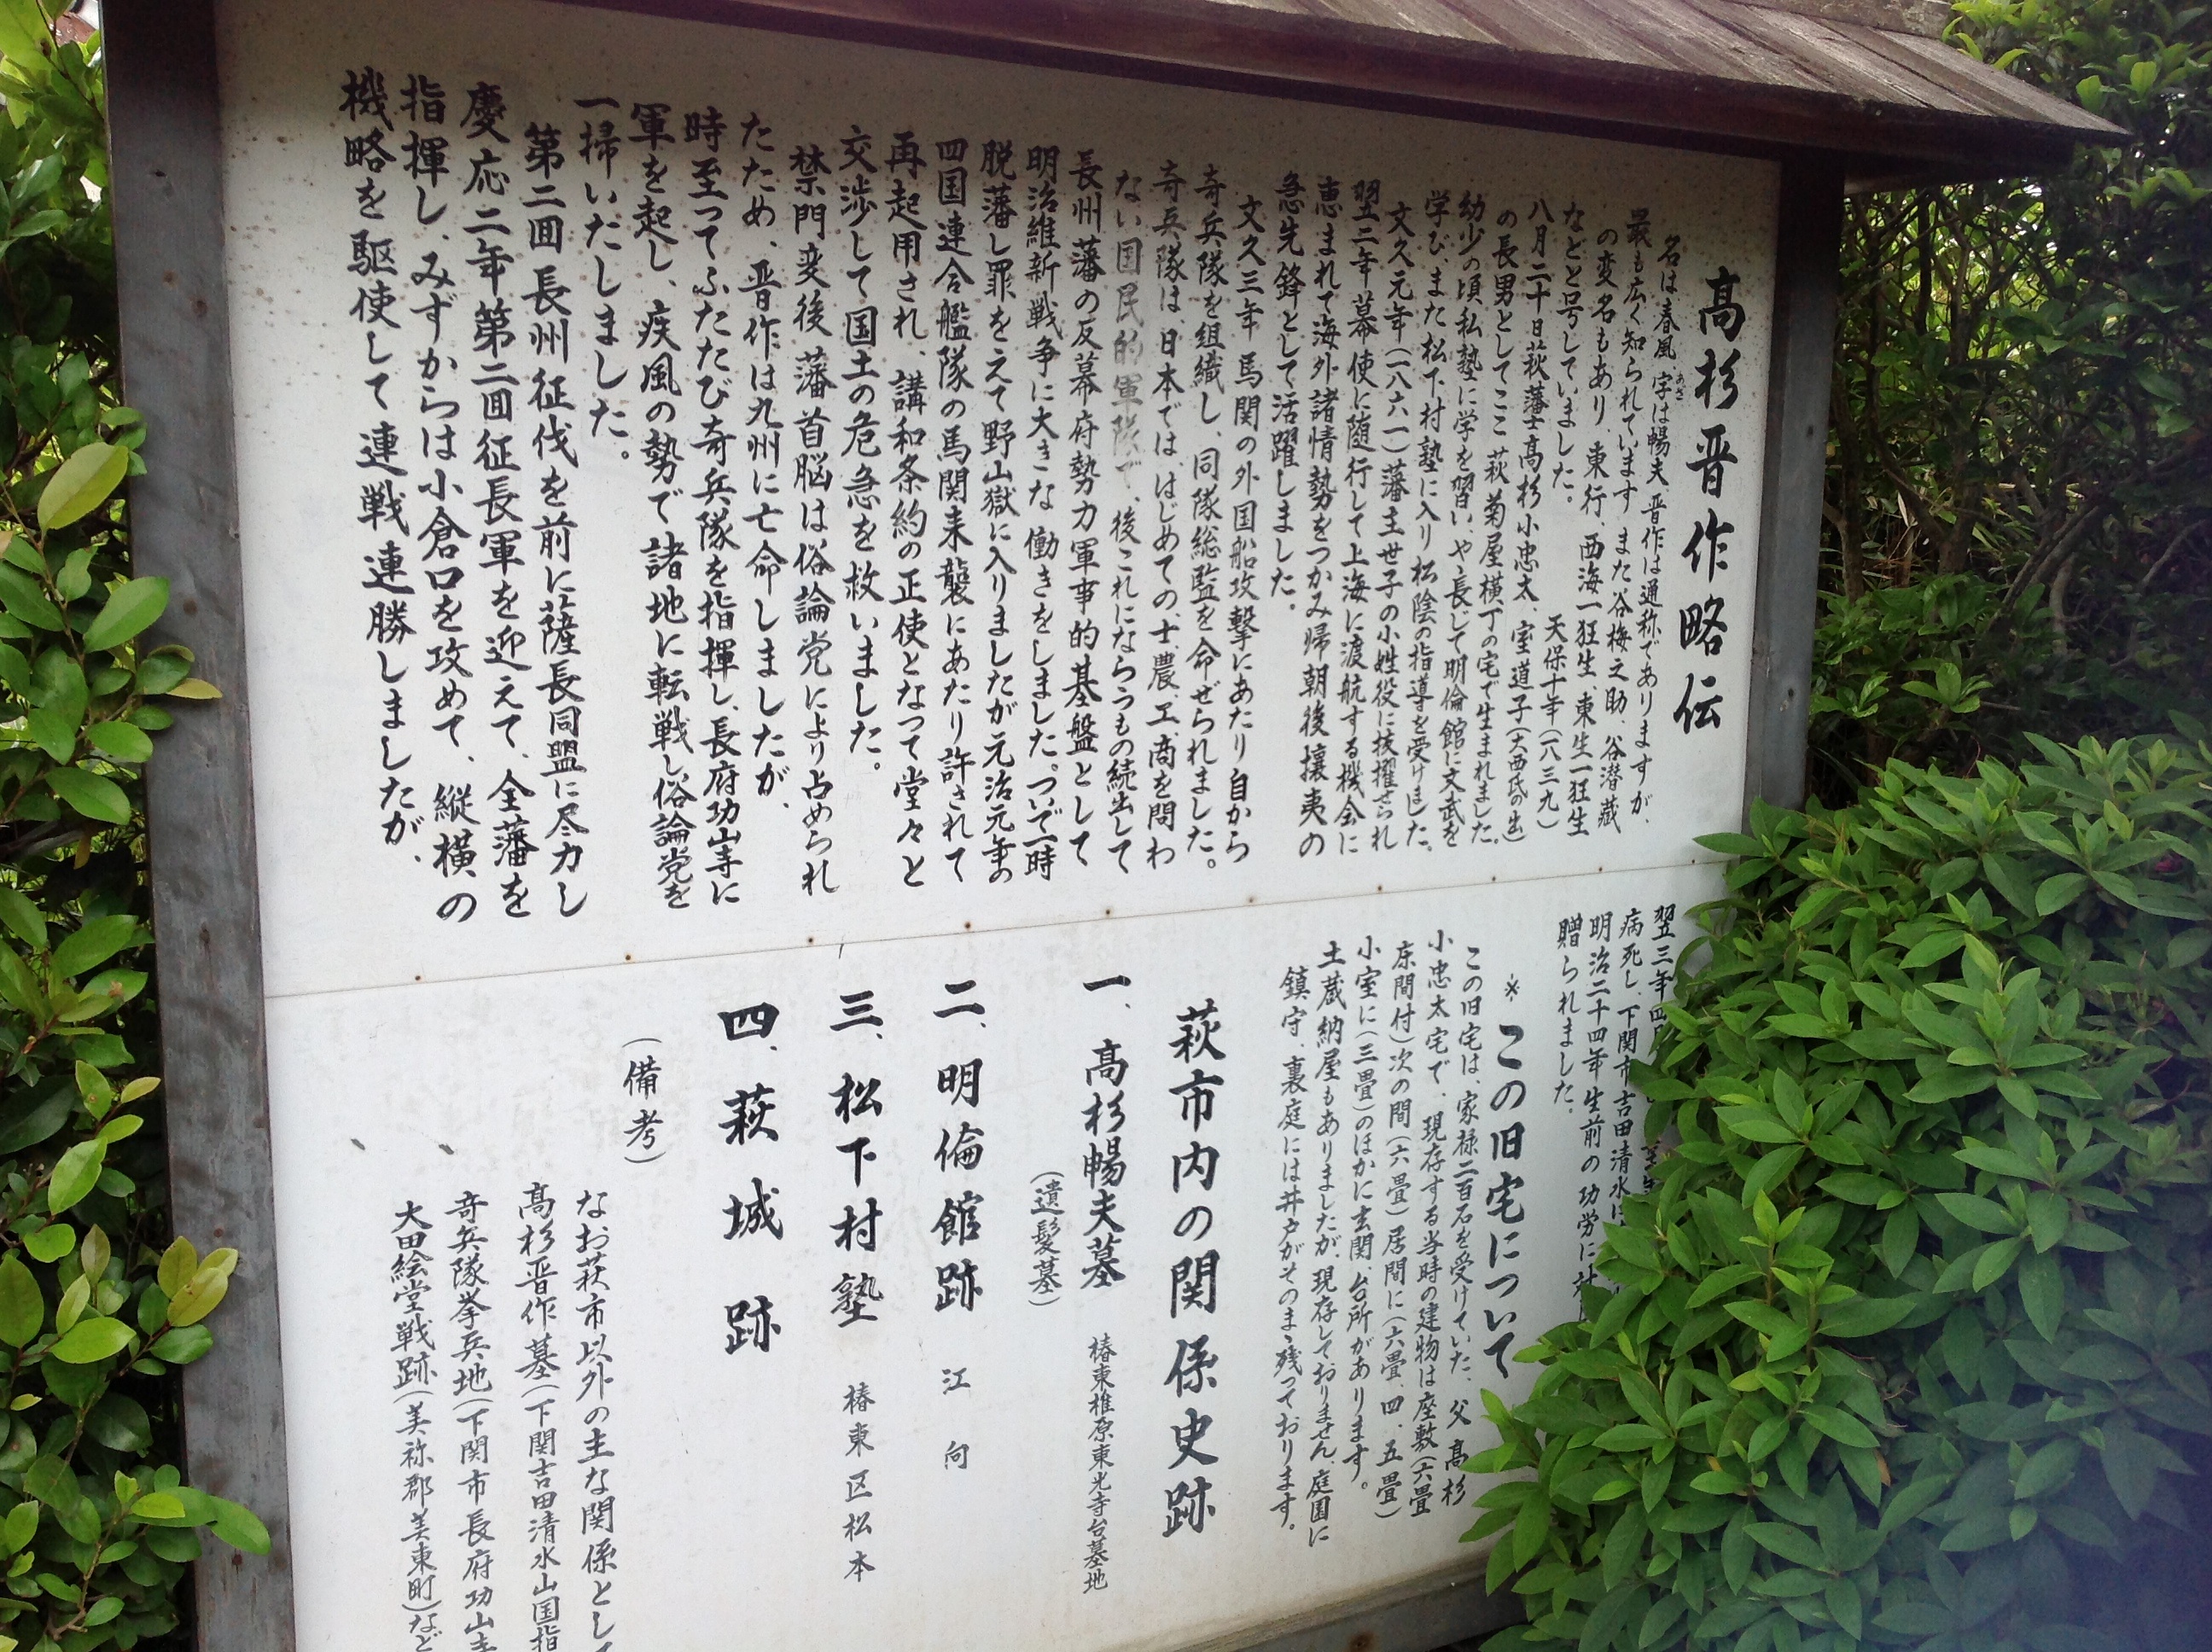 高杉晋作略伝
名は春風、字は暢夫、晋作は通称でありますが、
あざ
最も広く知られています また、谷梅之助、谷潜蔵
の変名もあり、東行、西海一狂生 東生一狂生
などと号していました。
天保十年(一八三九)
八月二十日萩藩士高杉小忠太、室道子(大西氏の出)
の長男としてここ 萩菊屋横丁の宅で生まれました。
幼少の頃私塾に学を習い、やゝ長じて明倫館に文武を
学び、また松下村塾に入り松陰の指導を受けました。
文久元年(一八六一)藩主世子の小姓役に抜擢せられ
翌二年幕使に随行して上海に渡航する機会に
恵まれて海外諸情勢をつかみ帰朝後攘夷の
急先鋒として活躍しました。
文久三年 馬関の外国船攻撃にあたり自から
奇兵隊を組織し、同隊総監を命ぜられました。
奇兵隊は、日本では、はじめての、士、農、工、商を問わ
ない国民的軍隊で、後これにならうもの続出して
長州藩の反幕府勢力軍事的基盤として
明治維新戦争に大きな働きをしました。ついで一時
脱藩し罪をえて野山獄に入りましたが元治元年の
四国連合艦隊の馬関来襲にあたり許されて
再起用され、講和条約の正使となって堂々と
交渉して国土の危急を救いました。
禁門変後 藩首脳は、俗論党により占められ
たため、晋作は九州に亡命しましたが、
時至ってふたたび奇兵隊を指揮し、長府功山寺に
軍を起し、疾風の勢で諸地に転戦し俗論党を
一掃いたしました。
第二回長州征伐を前に薩長同盟に尽力し
慶応二年第二回征長軍を迎えて、全藩を
指揮し、みずからは小倉口を攻めて、縦横の
機略を駆使して連戦連勝しましたが、
翌三年四月
病死し、下関市吉田清水に
明治二十四年生前の功労に対し
贈られました。
＊この旧宅について
この旧宅は、家禄二百石を受けていた、父高杉
小忠太宅で、現存する当時の建物は座敷(六畳
床間付)次の間(六畳)居間に(六畳、四、五畳)
小室に(三畳)のほかに玄関、台所があります。
土蔵納屋もありましたが、現存しておりません、庭園に
鎮守、裏庭には井戸がそのまゝ残っております。
萩市内の関係史跡
一、高杉暢夫墓 椿東椎原東光寺台墓地
(遺髪墓)
二、明倫館跡 江向
三、松下村塾 椿東区松本
四、萩城跡
(備考)
なお萩市以外の主な関係として
高杉晋作墓(下関吉田清水山国指
奇兵隊挙兵地(下関市長府功山寺
大田絵堂戦跡(美祢郡美東町)など